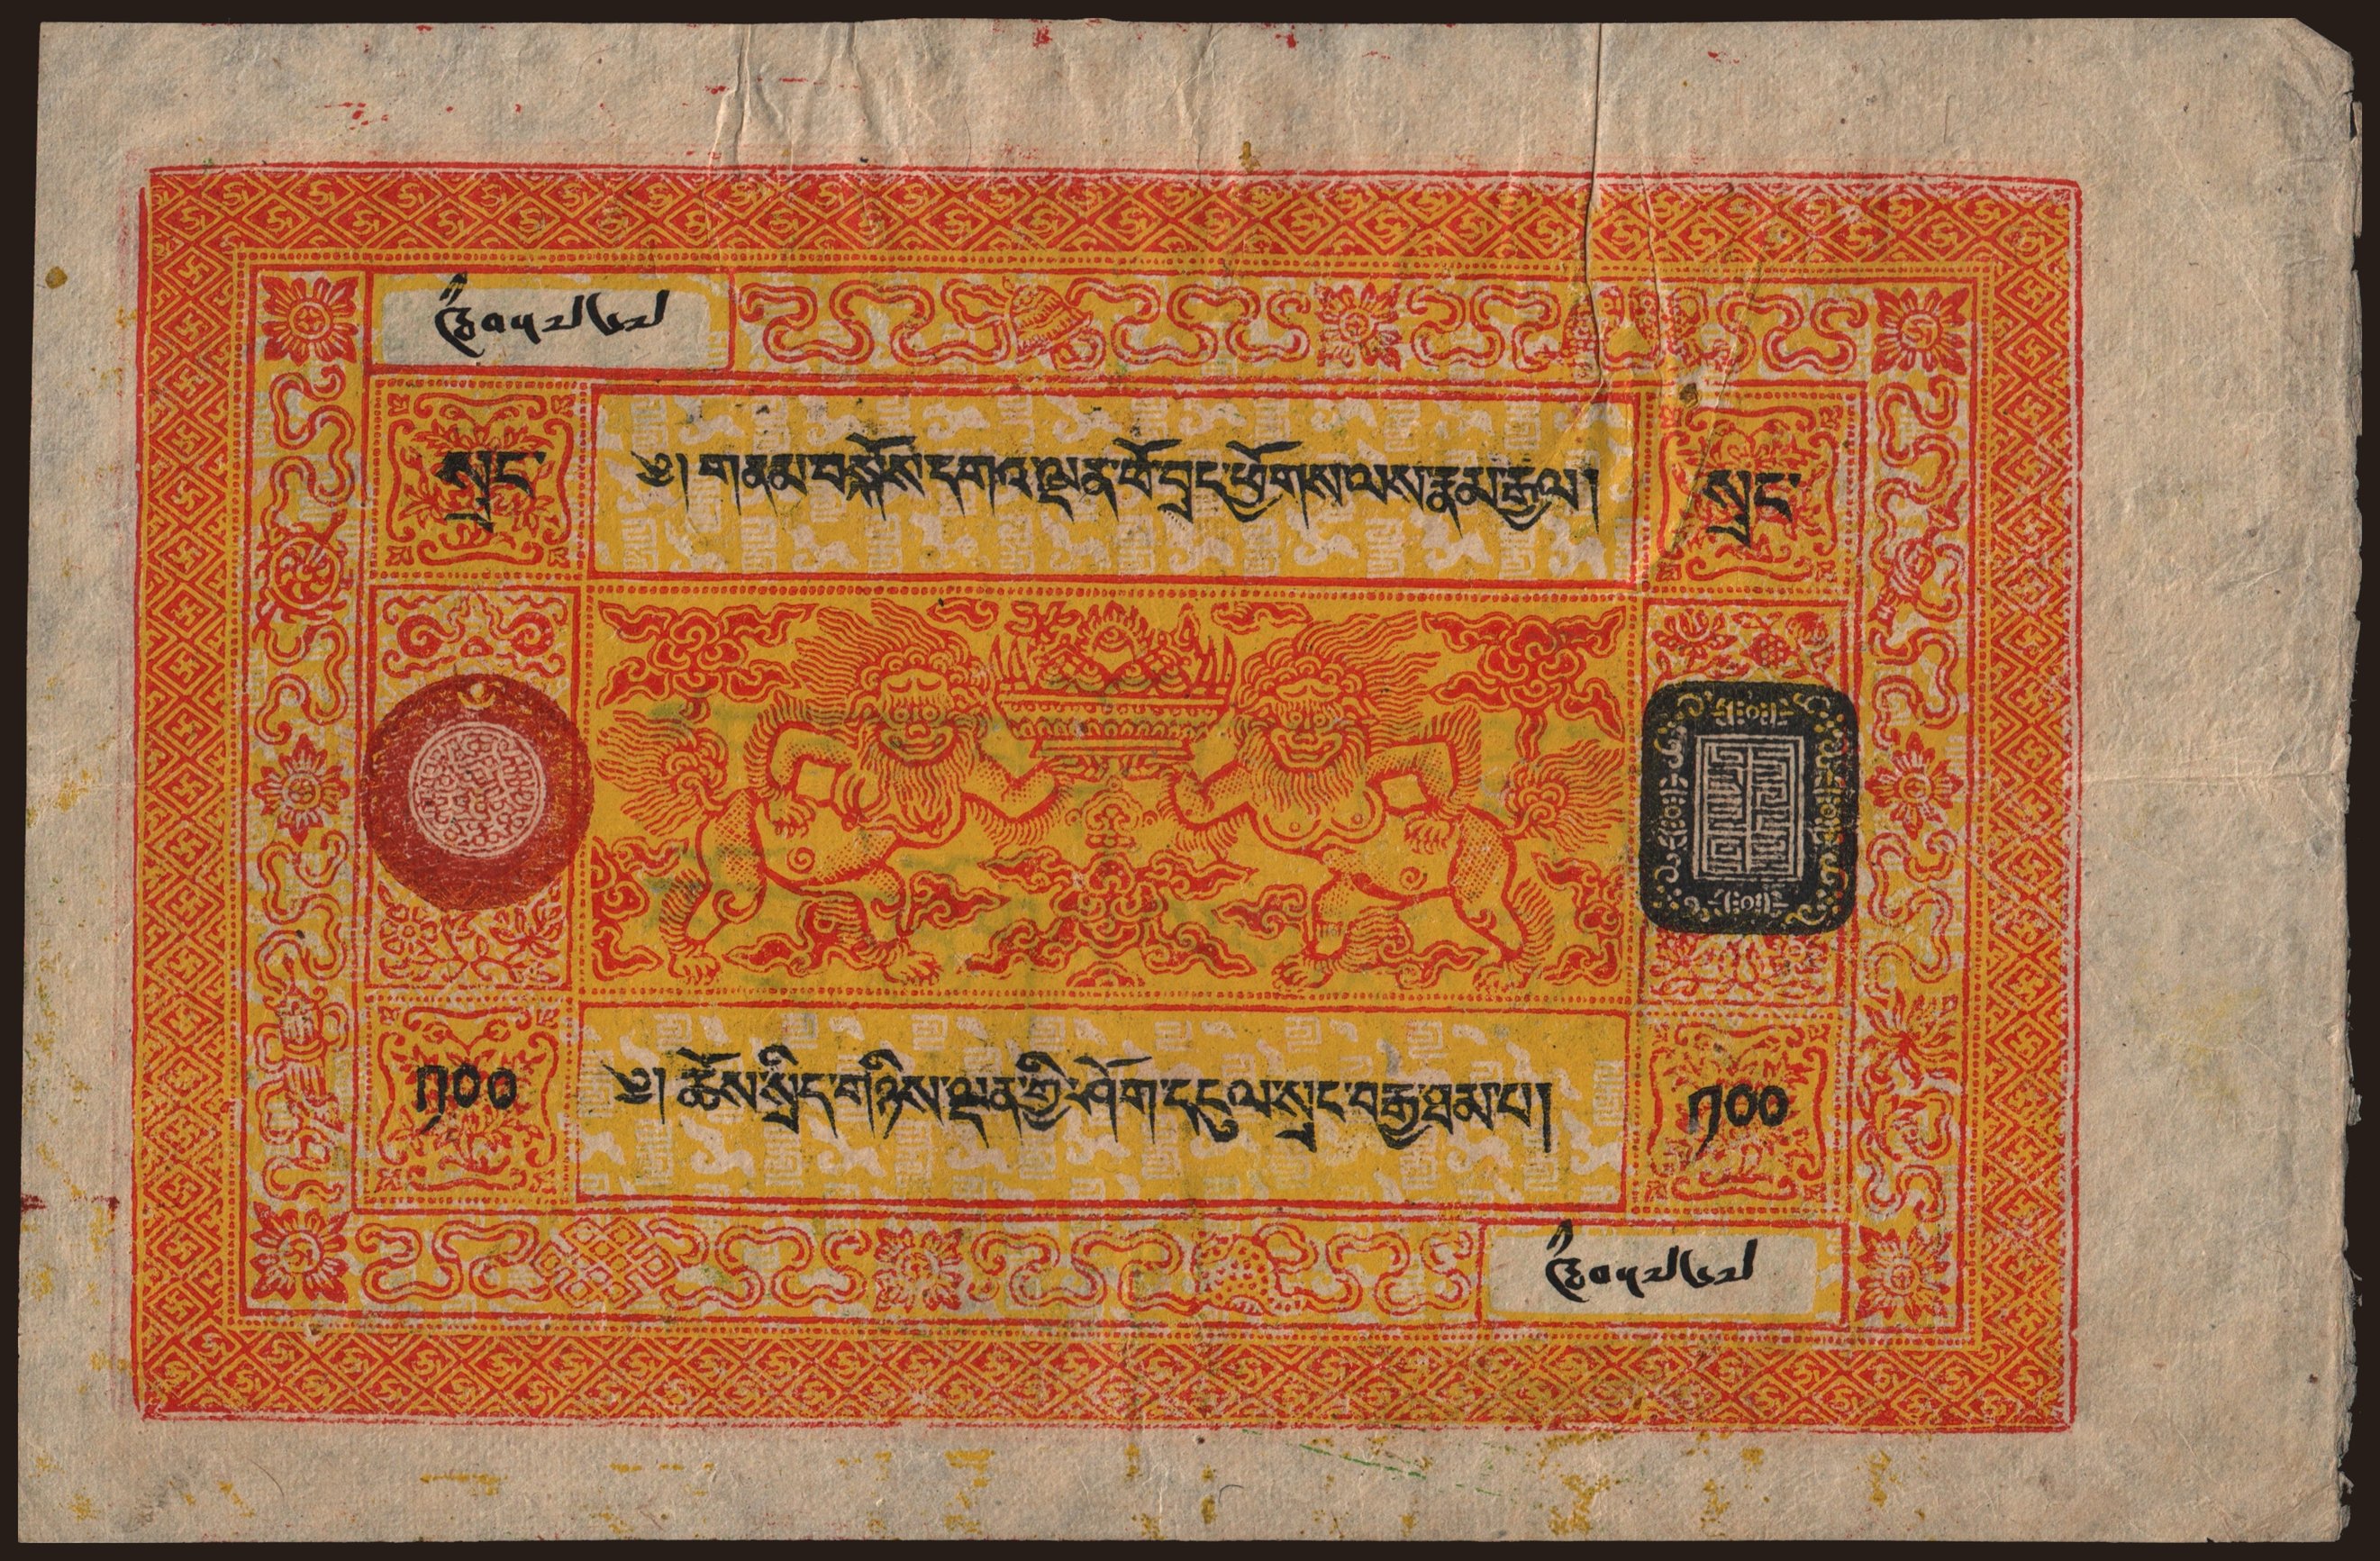 སྲང་
༄། གནམ་བསྐོས་དགའ་ལྡན་ཕོ་བྲང་ཕྱོགས་ལས་རྣམ་རྒྱལ།
སྲང་
༡༠༠
༄། ཆོས་སྲིད་གཉིས་ལྡན་གྱི་ཤོག་དངུལ་སྲང་བརྒྱ་ཐམ་པ།
༡༠༠